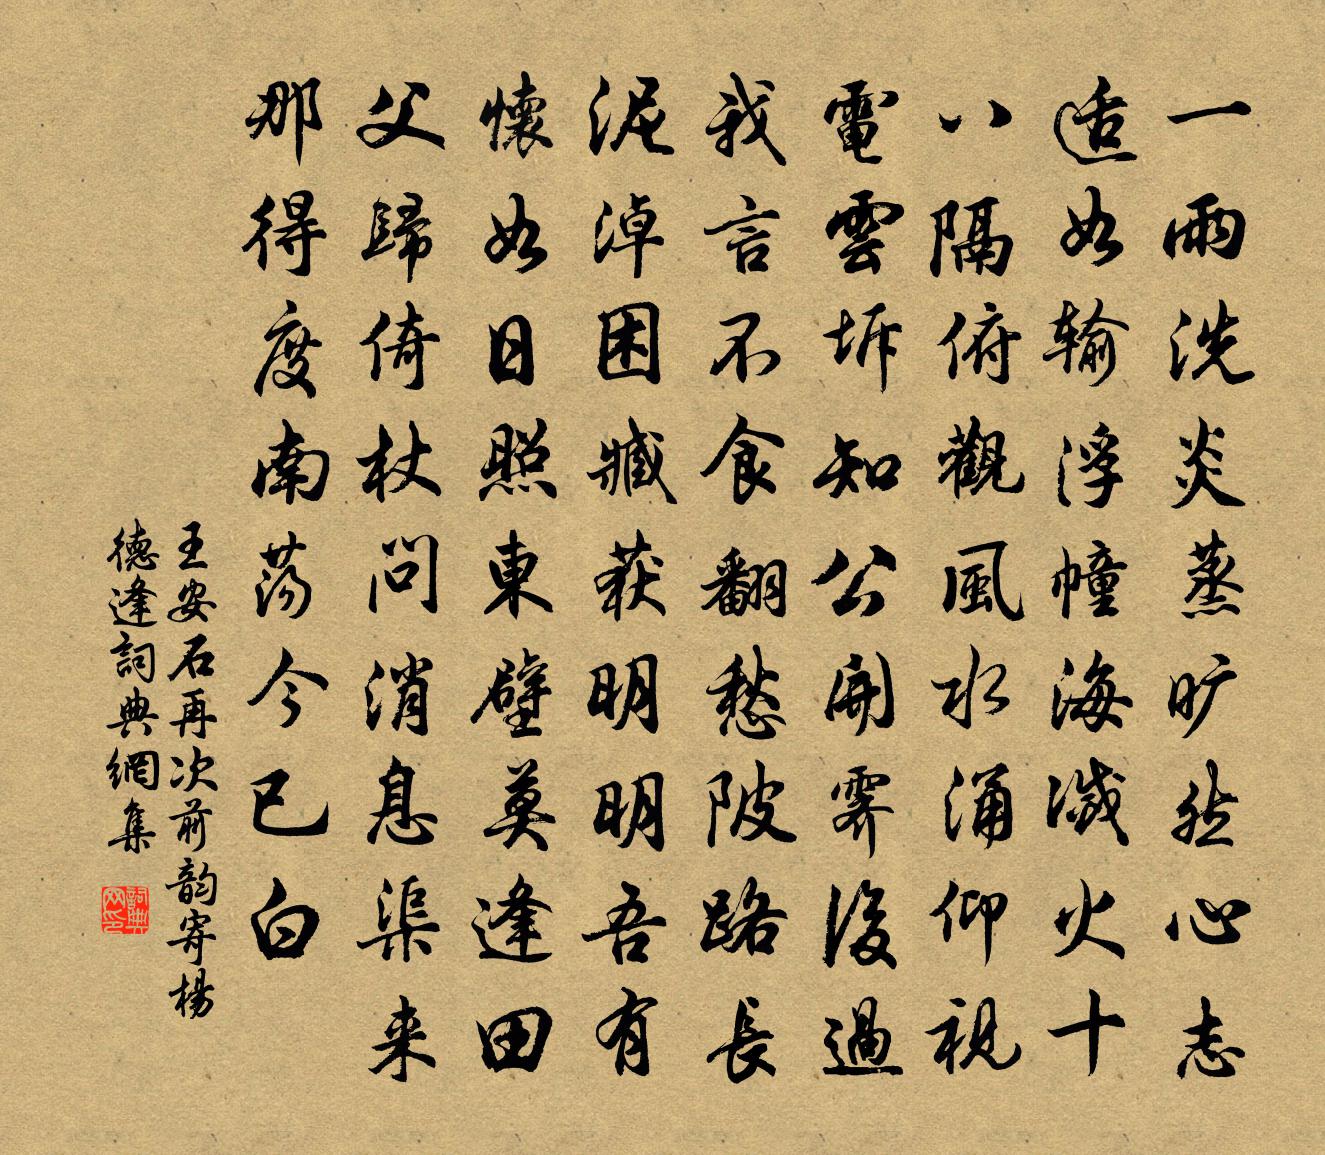 一雨洗炎蒸旷然心志
适如输浮幢海滅火十
八隔俯觀風水涌仰視
電雲坼知公開霽後過
我言不食翻愁陂路長
泥淖困臧获明明吾有
懷如日照東壁莫逢田
父歸倚杖問消息渠来
那得度南荡今已白
王安石再次前韵寄楊
德逢詞典網集
詞典
网印